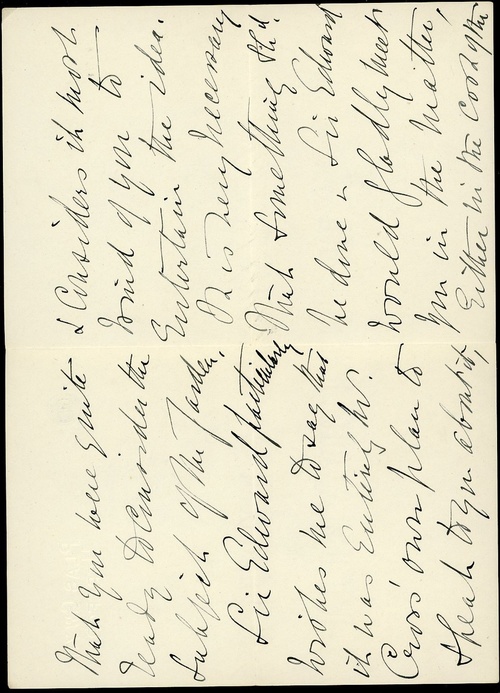 that you were quite
ready to consider the
subject of the Garden.
Sir Edward particularly
wishes me to say that
it was Entirely Mr.
Cross' own plan to
speak to you about it,
& Considers it most
kind of you to
Entertain the idea.
It is very necessary
that something shd.
be done & Sir Edward
would gladly meet
you in the matter,
Either in the cost of the